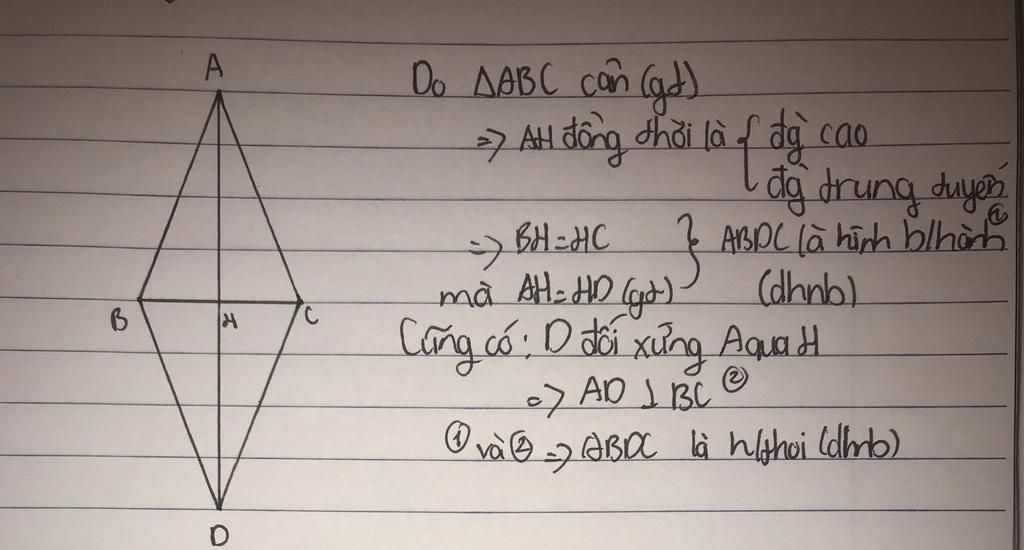 A
B
H
C
D
Do ΔABC cân (gt)
=> AH đồng thời là { đg cao
đg trung tuyến
=> BH = HC } ABDC là hình b/hành ①
mà AH = HD (gt) (dhnb)
Cũng có: D đối xứng A qua H
=> AD ⊥ BC ②
① và ② => ABDC là h/thoi (dhnb)